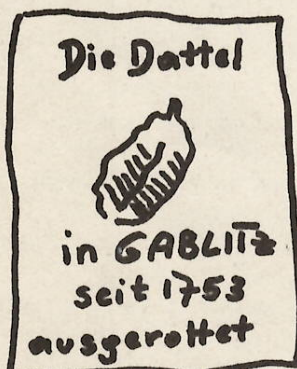 Die Dattel
in GABLITZ
seit 1753
ausgerottet